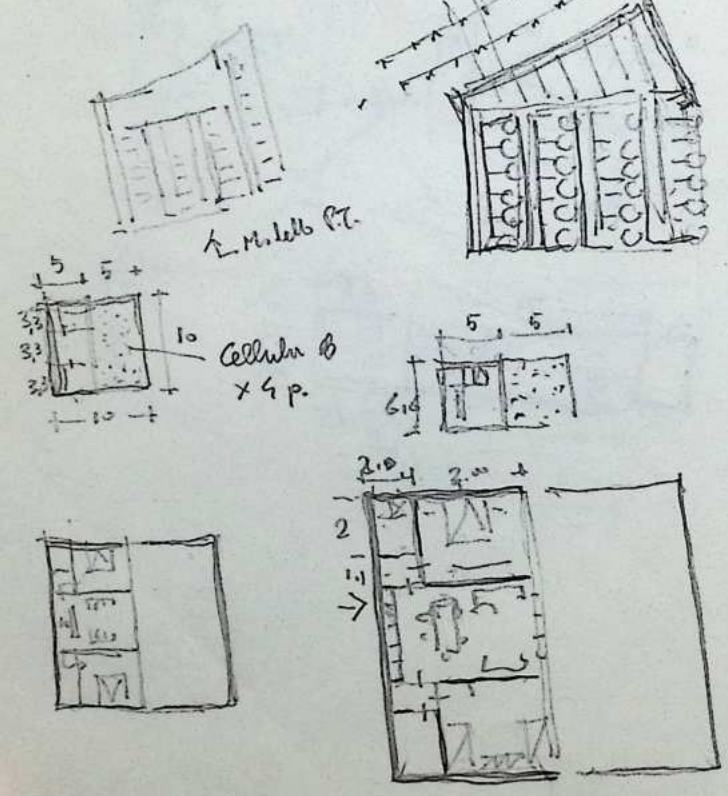 Modello P.T.
5 5
3,3
3,3
3,3
10
10
Cellula B
x 4 p.
5 5
6,6
2.00
2